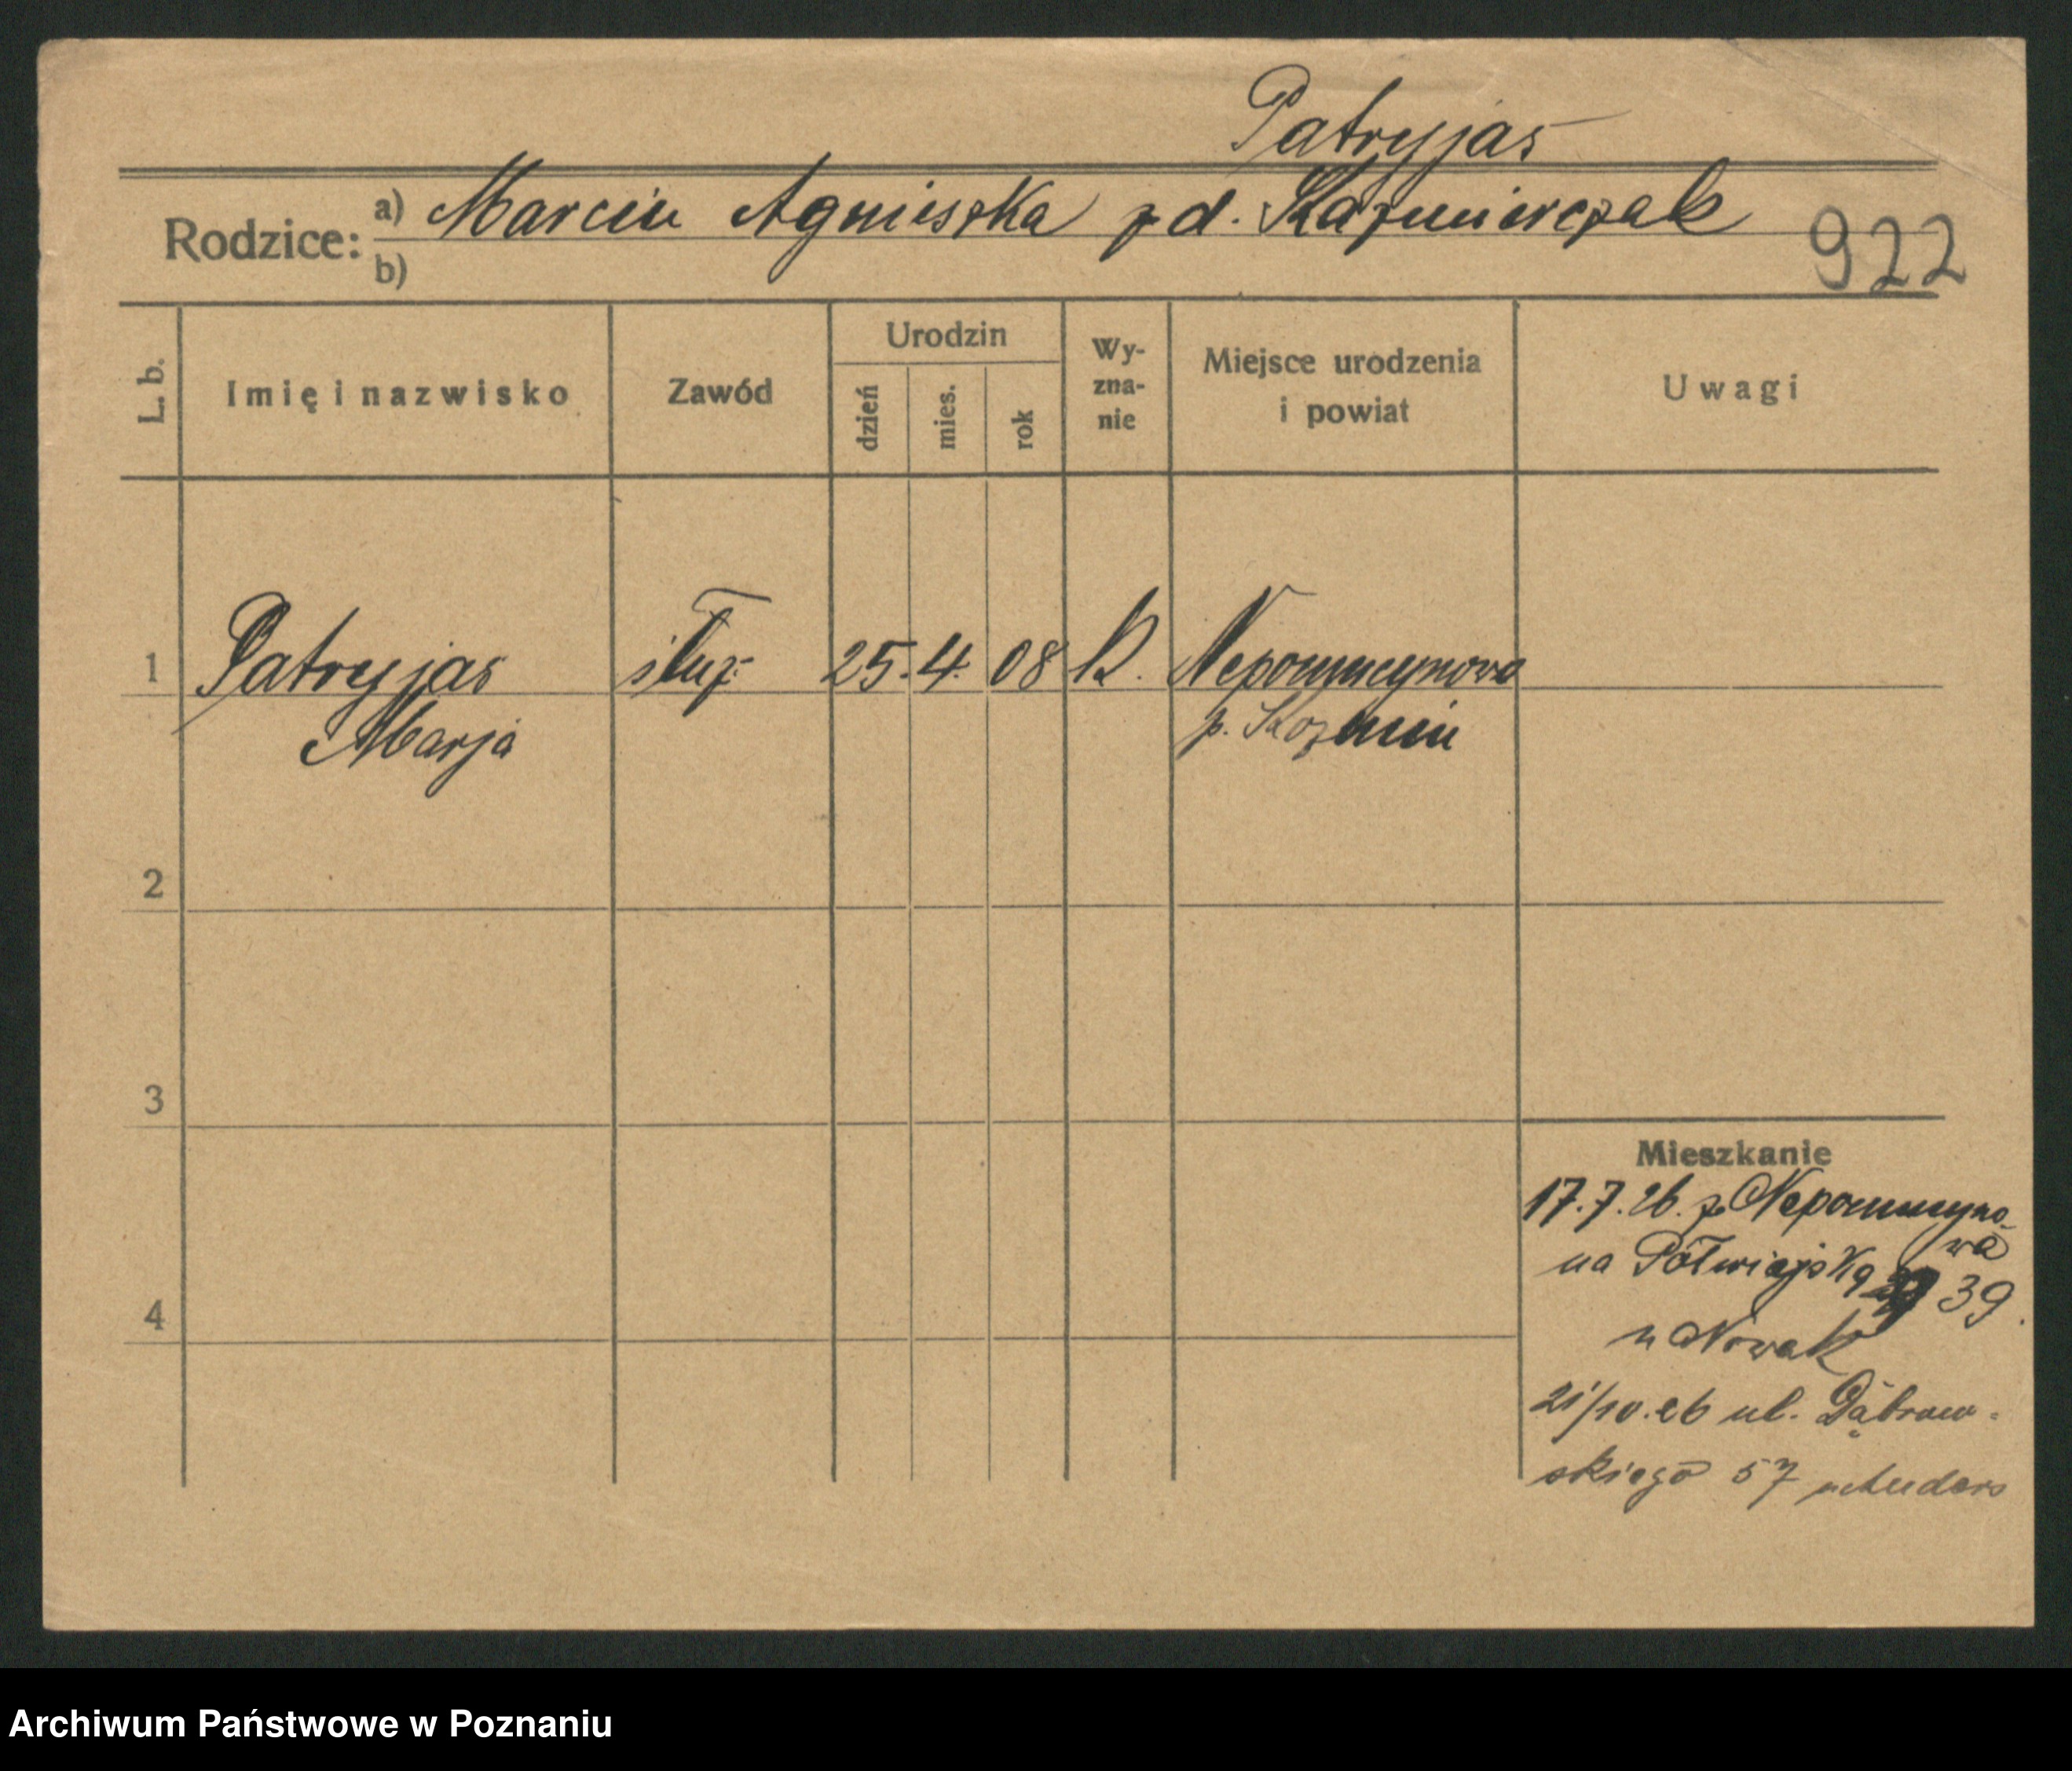 Patryjas
Rodzice: a) Marcin Agnieszka z d. Kaźmierczak
b)
922
L. b.
Imię i nazwisko
Zawód
Urodzin
dzień
mies.
rok
Wy-
zna-
nie
Miejsce urodzenia
i powiat
Uwagi
1 Patryjas służ. 25. 4. 08 k. Nepomucynowo
Marja p. Kozmin
2
3
4
Mieszkanie
17.7.26. z Nepomucyno-
wa
na Półwiejską 39.
u Nowak
21/10.26 ul. Dąbrow-
skiego 57
Archiwum Państwowe w Poznaniu